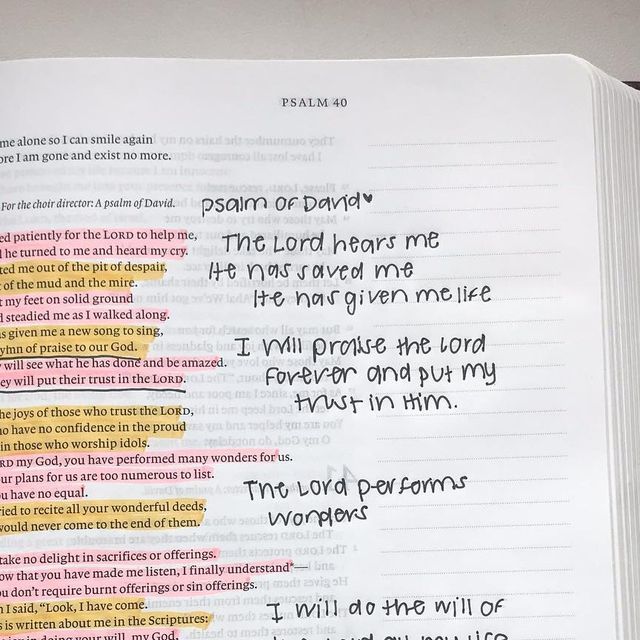 PSALM 40
me alone so I can smile again
ore I am gone and exist no more.
For the choir director: A psalm of David.
ed patiently for the LORD to help me,
he turned to me and heard my cry.
ted me out of the pit of despair,
of the mud and the mire.
my feet on solid ground
steadied me as I walked along.
s given me a new song to sing,
ymn of praise to our God.
will see what he has done and be amazed.
ey will put their trust in the LORD.
he joys of those who trust the LORD,
o have no confidence in the proud
in those who worship idols.
RD my God, you have performed many wonders for us.
ur plans for us are too numerous to list.
u have no equal.
ried to recite all your wonderful deeds,
would never come to the end of them.
take no delight in sacrifices or offerings.
ow that you have made me listen, I finally understand*—
u don't require burnt offerings or sin offerings.
I said, “Look, I have come.
s is written about me in the Scriptures:
doing your will, my God,
psalm of David♥
The Lord hears me
He has saved me
He has given me life
I will praise the Lord
forever and put my
trust in Him.
The Lord performs
wonders
I will do the will of